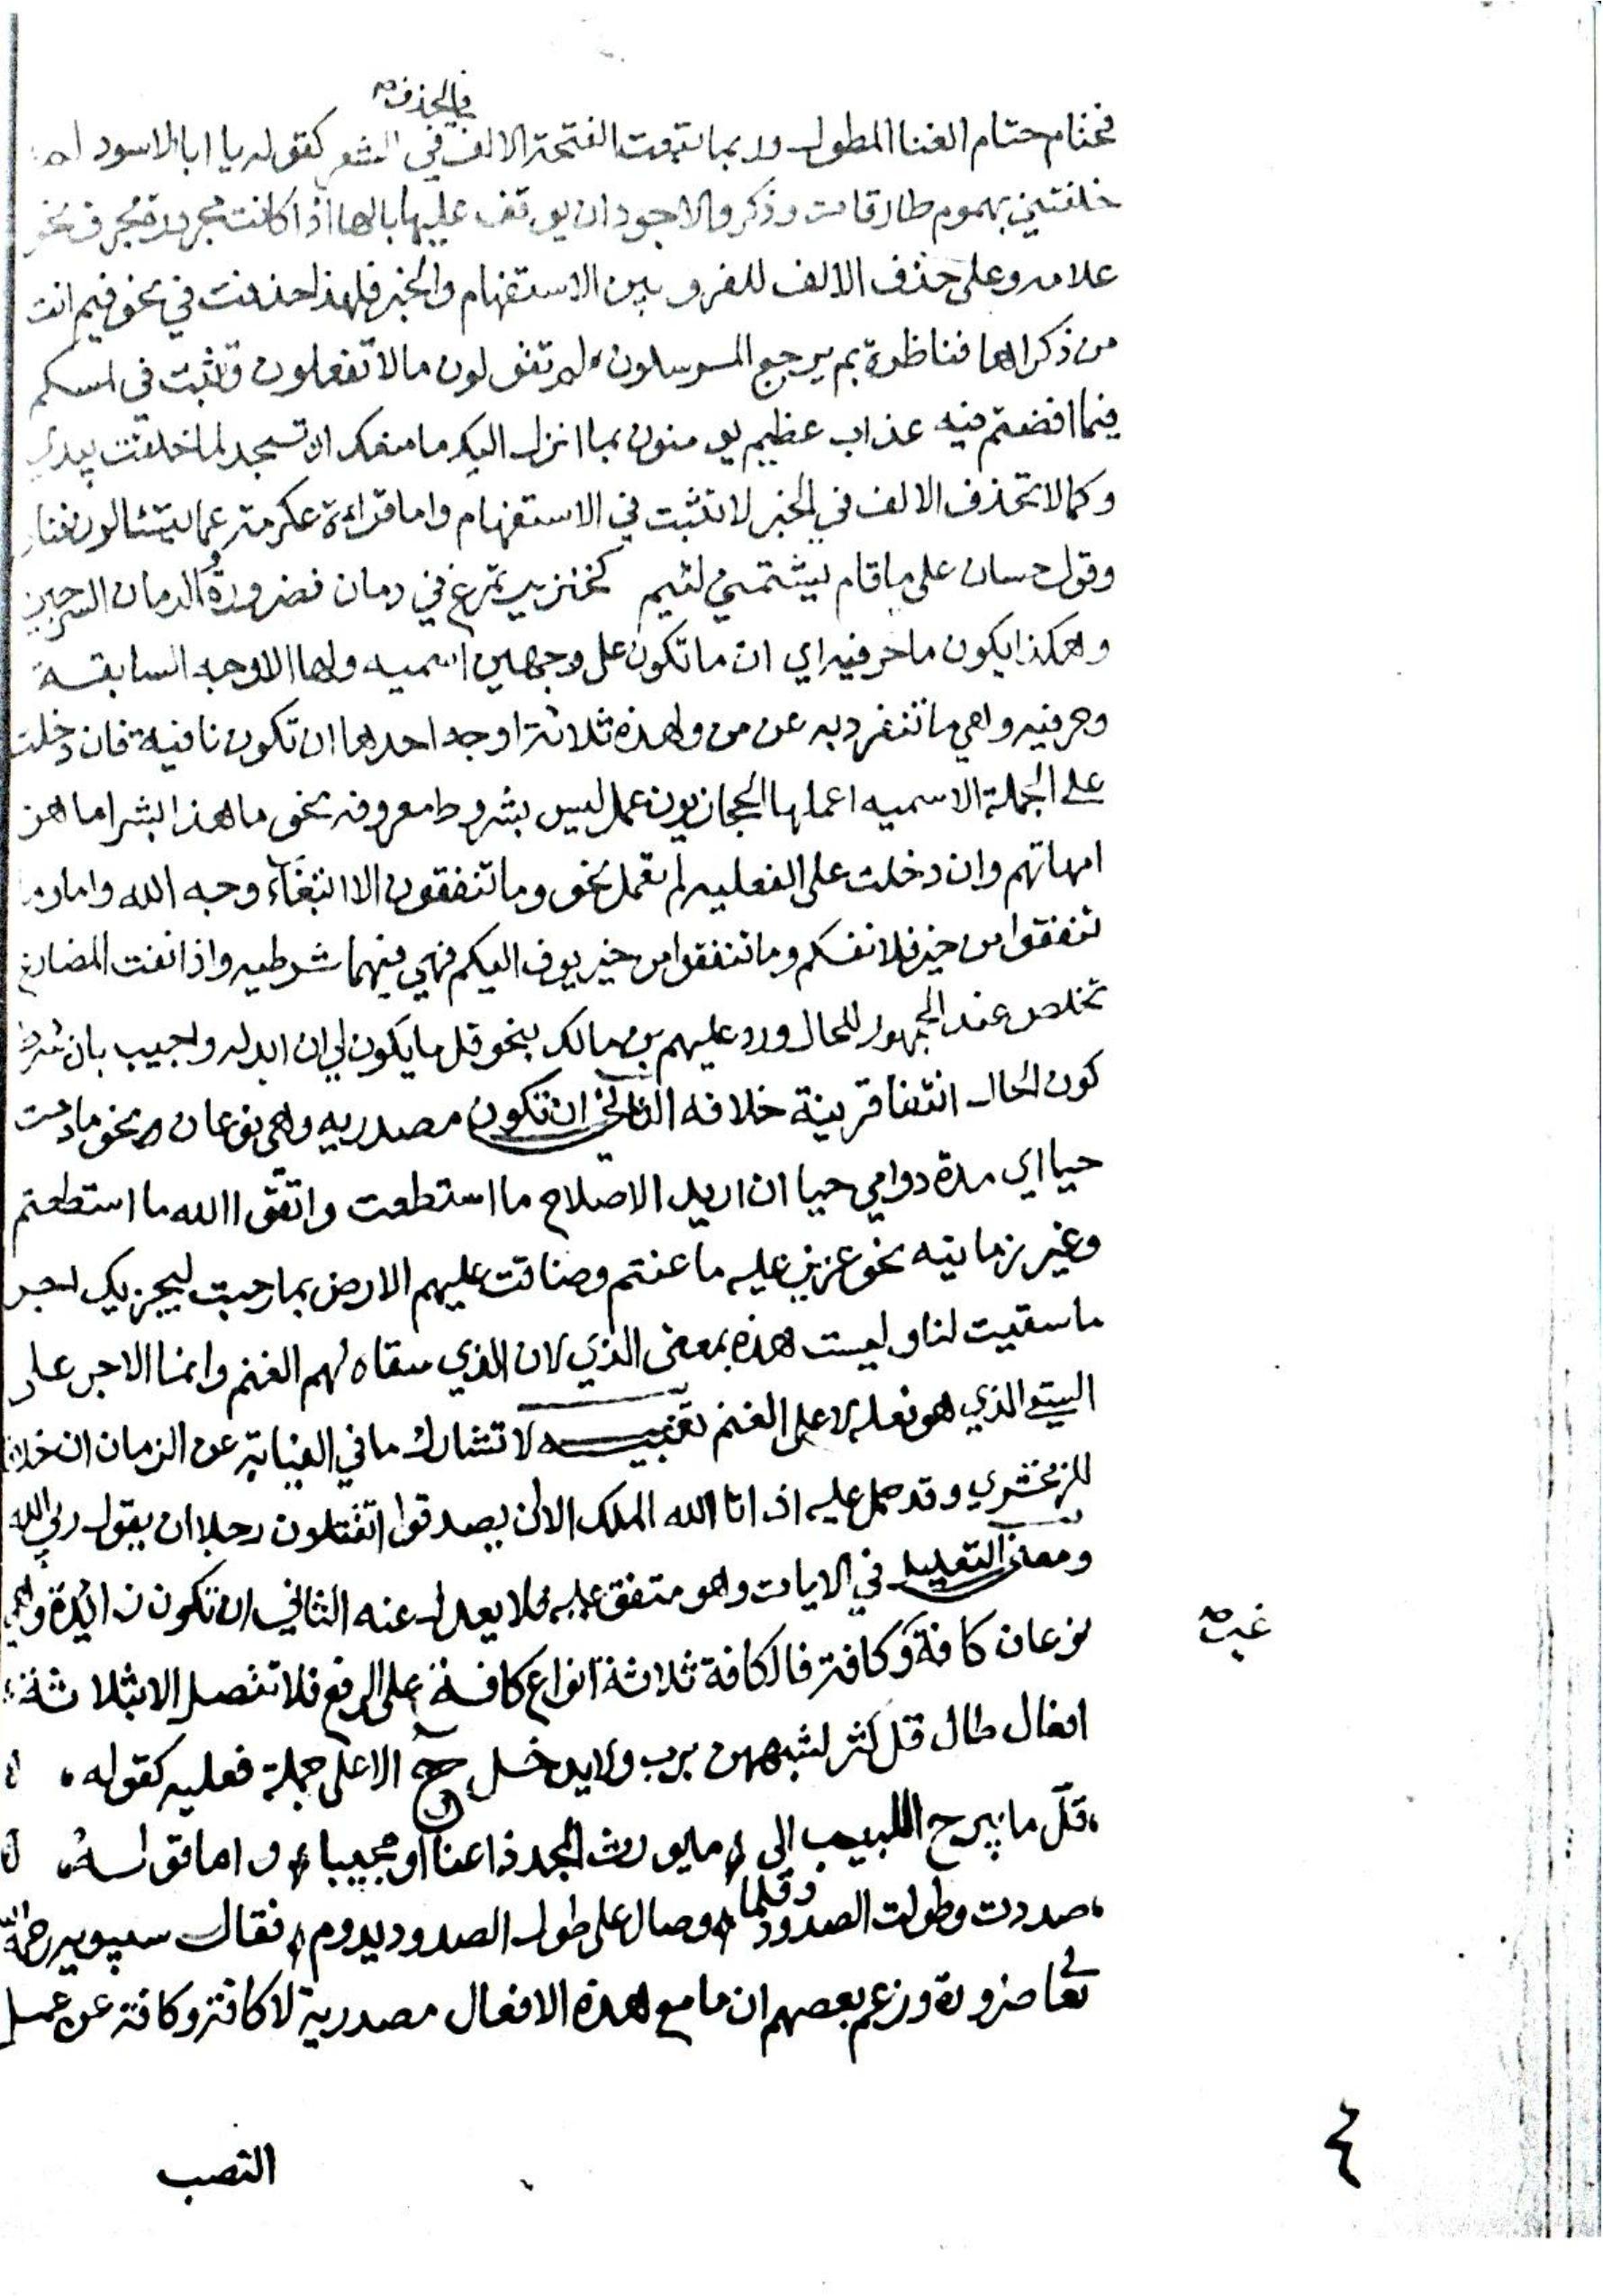 في الحذف صح
فحتام حتام العنا المطول وربما تبعت الفتحة الالف في الشعر كقوله يا ابا الاسود لم
خلفتني بهموم طارقات وذكر والاجود ان يوقف عليها بالها اذا كانت مجرورة بحرف نحو
علامه وعلى حذف الالف للفرق بين الاستفهام والخبر فلهذا حذفت في نحو فيم انت
من ذكراها فناظرة بم يرجع المرسلون لم تقولون ما لا تفعلون وتثبت في لمسكم
فيما افضتم فيه عذاب عظيم يومنون بما انزل اليك ما منعك ان تسجد لما خلقت بيدي
وكما لا تحذف الالف في الخبر لا تثبت في الاستفهام واما قراءة عكرمة عما يتسالون فنادر
وقول حسان على ما قام يشتمني لئيم كخنزير تمرغ في دمان فضرورة والدمان السرجين
وهكذا يكون ما حرفيه اي ان ما تكون على وجهين اسميه ولها الاوجه السابقة
وحرفيه وهي ما تنفرد به عن من ولهذه ثلاثة اوجه احدها ان تكون نافية فان دخلت
على الجملة الاسميه اعملها الحجازيون عمل ليس بشروط معروفه نحو ما هذا بشرا ما هن
امهاتهم وان دخلت على الفعليه لم تعمل نحو وما تنفقون الا ابتغاء وجه الله واما وما
تنفقوا من خير فلانفسكم وما تنفقوا من خير يوف اليكم فهي فيهما شرطيه واذا نفت المضارع
تخلص عند الجمهور للحال ورد عليهم بن مالك بنحو قل ما يكون لي ان ابدله واجيب بان شرط
كون الحال انتفا قرينة خلافه الثاني ان تكون مصدريه وهي نوعان نحو ما دمت
حيا اي مدة دوامي حيا ان اريد الاصلاح ما استطعت واتقوا الله ما استطعتم
وغير زمانيه نحو عزيز عليه ما عنتم وضاقت عليهم الارض بما رحبت ليجزيك اجر
ما سقيت لنا وليست هذه بمعنى الذي لان الذي سقاه لهم الغنم وانما الاجر على
السقي الذي هو فعله لا على الغنم تنبيه لا تشارك ما في النيابة عن الزمان ان خلافا
للزمخشري وقد حمل عليه اذ اتا الله الملك الا ان يصدقوا اتقتلون رجلا ان يقول ربي الله
ومعنى التعليل في الايات وهو متفق عليه فلا يعدل عنه الثاني ان تكون زائدة وهي
نوعان كافة وكافة فالكافة ثلاثة انواع كافة على الرفع فلا تتصل الا بثلاثة
غير صح
افعال طال قل كثر لشبههن برب ولا يدخل ح الا على جملة فعليه كقوله
قل ما يبرح اللبيب الى ما يورث المجد داعيا او مجيبا واما قوله
صددت وطولت الصدود وقلما وصال على طول الصدود يدوم فقال سيبويه رحمه الله
تعا ضرورة وزعم بعضهم ان ما مع هذه الافعال مصدرية لا كافة وكافة عن عمل
النصب
٤